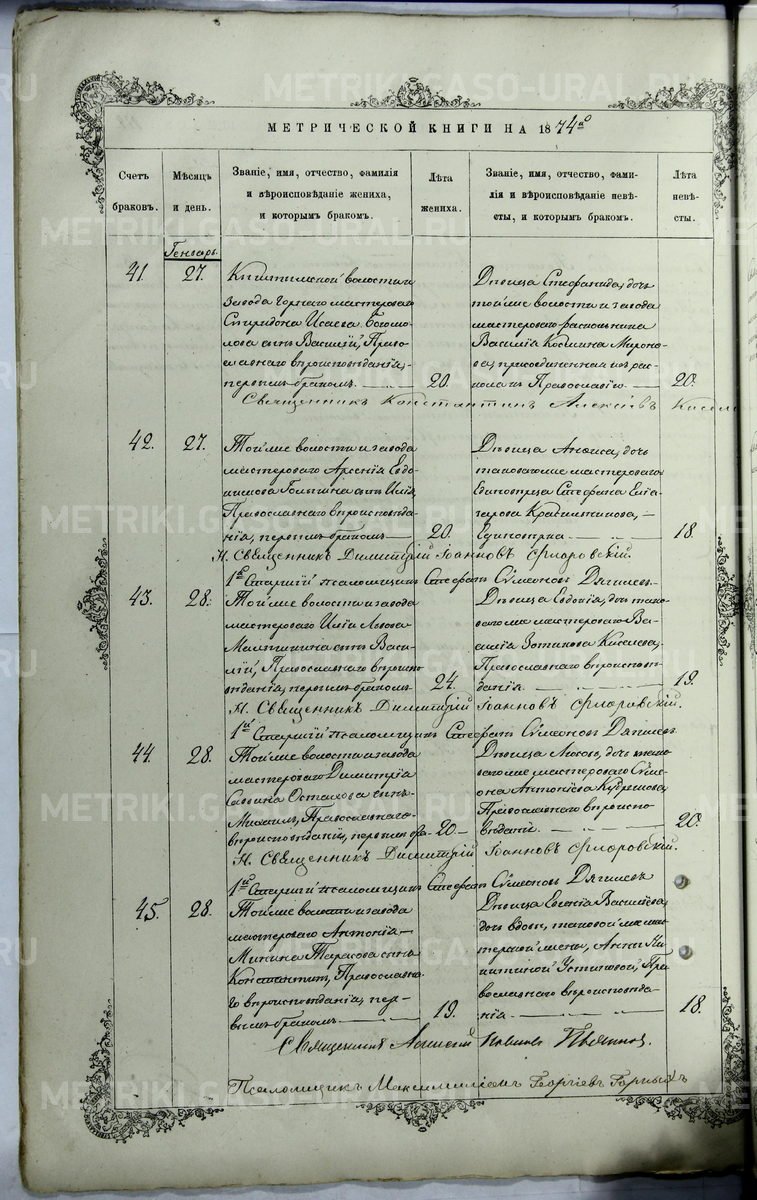 МЕТРИЧЕСКОЙ КНИГИ НА 1874й
Счетъ
браковъ.
Мѣсяцъ
и день.
Званіе, имя, отчество, фамилія
и вѣроисповѣданіе жениха,
и которымъ бракомъ.
Лѣта
жениха.
Званіе, имя, отчество, фами-
лія и вѣроисповѣданіе невѣ-
сты, и которымъ бракомъ.
Лѣта
невѣ-
сты.
Генварь.
41.
27.
Кыштымской волости и
завода горнаго мастероваго
Спиридона Исаева Богомо-
лова сынъ Василій, Право-
славнаго вѣроисповѣданія,
первымъ бракомъ.
20.
Дѣвица Стефанида, дочь
той же волости и завода
мастероваго раскольника
Василія Космина Мироно-
ва, присоединенная изъ рас-
кола къ Православію.
20.
Священникъ Константинъ Алексѣевъ
42.
27.
Той же волости и завода
мастероваго Арсенія Евдо-
кимова сынъ Илія,
Православнаго вѣроисповѣда-
нія, первымъ бракомъ
20.
Дѣвица Анѳиса, дочь
таковаго же мастероваго
Единовѣрца Стефана
Единовѣрка
18.
Н. Священникъ Димитрій Іоанновъ Флоровскій.
1й Старшій псаломщикъ Стефанъ Сѵмеоновъ Дягилевъ
43.
28.
Той же волости и завода
мастероваго Иліи Львова
сынъ Васи-
лій, Православнаго вѣроиспо-
вѣданія, первымъ бракомъ
24.
Дѣвица Евдокія, дочь тако-
ваго же мастероваго Ва-
силія Зотикова Киселева,
Православнаго вѣроисповѣ-
данія.
19.
Н. Священникъ Димитрій Іоанновъ Флоровскій.
1й Старшій псаломщикъ Стефанъ Сѵмеоновъ Дягилевъ
44.
28.
Той же волости и завода
мастероваго Димитрія
Саввина сынъ
Михаилъ, Православнаго
вѣроисповѣданія, первымъ бра-
20
Дѣвица Любовь, дочь тако-
ваго же мастероваго Сѵме-
она Антонѣева
Православнаго вѣроиспо-
вѣданія.
20.
Н. Священникъ Димитрій Іоанновъ Флоровскій.
1й Старшій псаломщикъ Стефанъ Сѵмеоновъ Дягилевъ
45.
28.
Той же волости и завода
мастероваго Антонія
Минина Тарасова сынъ
Константинъ, Православна-
го вѣроисповѣданія, пер-
вымъ бракомъ
19.
Дѣвица Евгенія Васильева,
дочь вдовы, таковой же мас-
терской жены, Анны Ни-
китиной Устиновой, Пра-
вославнаго вѣроисповѣда-
нія
18.
Священникъ Алексій
Псаломщикъ Максимиліанъ Георгіевъ Горныхъ
METRIKI.GASO-URAL.RU